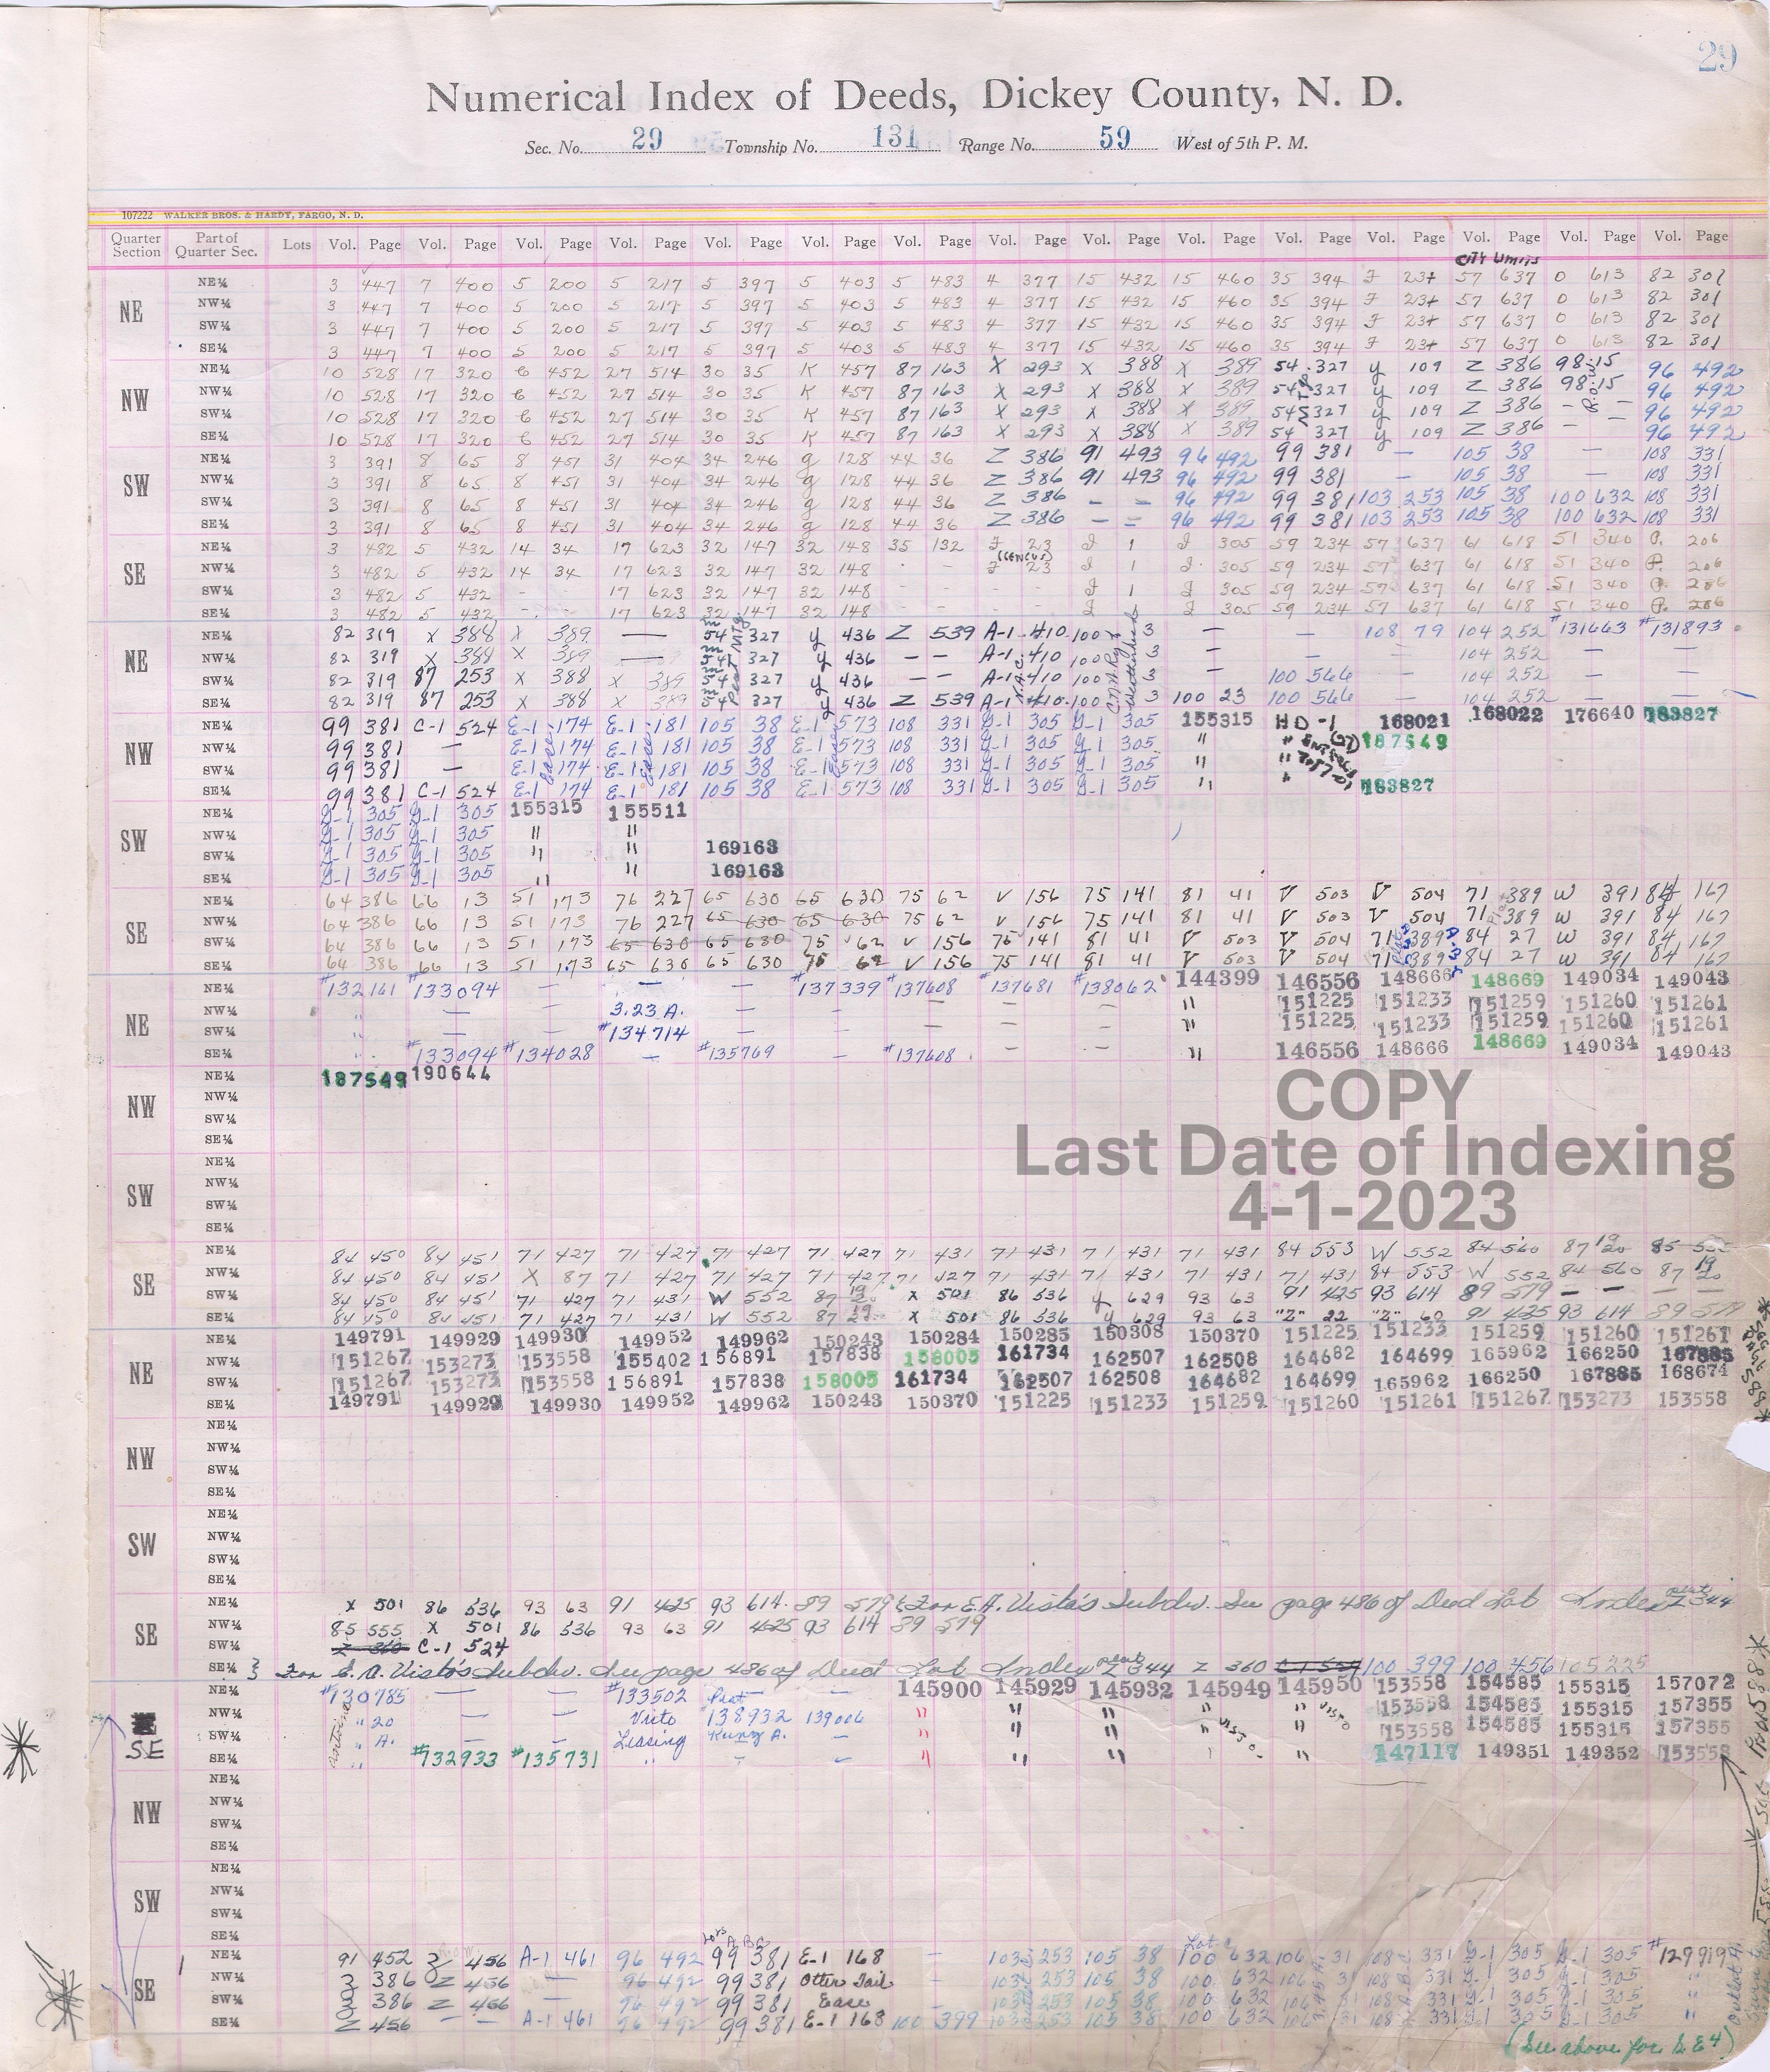 29
Numerical Index of Deeds, Dickey County, N. D.
Sec. No. 29 Township No. 131 Range No. 59 West of 5th P. M.
107222 WALKER BROS. & HARDY, FARGO, N. D.
Quarter Section Part of Quarter Sec. Lots Vol. Page Vol. Page Vol. Page Vol. Page Vol. Page Vol. Page Vol. Page Vol. Page Vol. Page Vol. Page Vol. Page Vol. Page Vol. Page Vol. Page Vol. Page
City Limits
NE NE¼ 3 447 7 400 5 200 5 217 5 397 5 403 5 483 4 377 15 432 15 460 35 394 57 637 0 613 82 301
NW¼ 3 447 7 400 5 200 5 217 5 397 5 403 5 483 4 377 15 432 15 460 35 394 57 637 0 613 82 301
SW¼ 3 447 7 400 5 200 5 217 5 397 5 403 5 483 4 377 15 432 15 460 35 394 57 637 0 613 82 301
SE¼ 3 447 7 400 5 200 5 217 5 397 5 403 5 483 4 377 15 432 15 460 35 394 57 637 0 613 82 301
NW NE¼ 10 528 17 320 6 452 27 514 30 35 K 457 87 163 X 293 X 388 X 389 54 327 y 109 Z 386 98 15 96 492
NW¼ 10 528 17 320 6 452 27 514 30 35 K 457 87 163 X 293 X 388 X 389 54 327 y 109 Z 386 98 15 96 492
SW¼ 10 528 17 320 6 452 27 514 30 35 K 457 87 163 X 293 X 388 X 389 54 327 y 109 Z 386 — — 96 492
SE¼ 10 528 17 320 6 452 27 514 30 35 K 457 87 163 X 293 X 388 X 389 54 327 y 109 Z 386 — 96 492
SW NE¼ 3 391 8 65 8 451 31 404 34 246 g 128 44 36 Z 386 91 493 96 492 99 381 — 105 38 — 108 331
NW¼ 3 391 8 65 8 451 31 404 34 246 g 128 44 36 Z 386 91 493 96 492 99 381 — 105 38 — 108 331
SW¼ 3 391 8 65 8 451 31 404 34 246 g 128 44 36 Z 386 — — 96 492 99 381 103 253 105 38 100 632 108 331
SE¼ 3 391 8 65 8 451 31 404 34 246 g 128 44 36 Z 386 — — 96 492 99 381 103 253 105 38 100 632 108 331
SE NE¼ 3 482 5 432 14 34 17 623 32 147 32 148 35 132 J 23 J 1 J 305 59 234 57 637 61 618 51 340 P. 206
NW¼ 3 482 5 432 14 34 17 623 32 147 32 148 - - J 23 J 1 J 305 59 234 57 637 61 618 51 340 P. 206
SW¼ 3 482 5 432 - - 17 623 32 147 32 148 - - - - J 1 J 305 59 234 57 637 61 618 51 340 P. 206
SE¼ 3 482 5 432 - - 17 623 32 147 32 148 - - - - J 305 59 234 57 637 61 618 51 340 P. 206
NE NE¼ 82 319 X 388 X 389 — 54 327 y 436 Z 539 A-1 410 100 3 — — 108 79 104 252 #131663 #131893
NW¼ 82 319 X 388 X 389 — 54 327 y 436 — — A-1 410 100 3 — 104 252 — —
SW¼ 82 319 87 253 X 388 X 389 54 327 y 436 — — A-1 410 100 3 — 100 566 104 252 — —
SE¼ 82 319 87 253 X 388 X 389 54 327 y 436 Z 539 A-1 410 100 3 100 23 100 566 104 252 — —
NW NE¼ 99 381 C-1 524 E-1 174 E-1 181 105 38 E-1 573 108 331 G-1 305 G-1 305 155315 HD-1 168021 168022 176640 183827
NW¼ 99 381 — E-1 174 E-1 181 105 38 E-1 573 108 331 G-1 305 G-1 305 " " 187549
SW¼ 99 381 — E-1 174 E-1 181 105 38 E-1 573 108 331 G-1 305 G-1 305 " "
SE¼ 99 381 C-1 524 E-1 174 E-1 181 105 38 E-1 573 108 331 G-1 305 G-1 305 " " 183827
SW NE¼ G-1 305 G-1 305 155315 155511
NW¼ G-1 305 G-1 305 " "
SW¼ G-1 305 G-1 305 " " 169163
SE¼ G-1 305 G-1 305 " " 169163
SE NE¼ 64 386 66 13 51 173 76 227 65 630 65 630 75 62 V 156 75 141 81 41 V 503 V 504 71 389 W 391 84 167
NW¼ 64 386 66 13 51 173 76 227 65 630 65 630 75 62 V 156 75 141 81 41 V 503 V 504 71 389 W 391 84 167
SW¼ 64 386 66 13 51 173 65 630 65 630 75 62 V 156 75 141 81 41 V 503 V 504 71 389 84 27 W 391 84 167
SE¼ 64 386 66 13 51 173 65 630 65 630 75 62 V 156 75 141 81 41 V 503 V 504 71 389 84 27 W 391 84 167
NE NE¼ #132161 #133094 — — — #137339 #137608 #137681 #138062 144399 146556 148666 148669 149034 149043
NW¼ " — — 3.23 A. — — — — — " 151225 151233 151259 151260 151261
SW¼ " — — #134714 — — — — — " 151225 151233 151259 151260 151261
SE¼ " #133094 #134028 — #135769 — #137608 — — " 146556 148666 148669 149034 149043
NW NE¼ 187549 190644
NW¼
SW¼
SE¼
COPY
Last Date of Indexing
4-1-2023
SW NE¼
NW¼
SW¼
SE¼
SE NE¼ 84 450 84 451 71 427 71 427 71 427 71 427 71 431 71 431 71 431 71 431 84 553 W 552 84 560 87 19 20 85 555
NW¼ 84 450 84 451 X 87 71 427 71 427 71 427 71 427 71 431 71 431 71 431 71 431 84 553 W 552 84 560 87 19 20
SW¼ 84 450 84 451 71 427 71 431 W 552 87 19 20 X 501 86 536 y 629 93 63 91 425 93 614 89 579 — — —
SE¼ 84 450 84 451 71 427 71 431 W 552 87 19 20 X 501 86 536 y 629 93 63 "Z" 22 "Z" 60 91 425 93 614 89 579
NE NE¼ 149791 149929 149930 149952 149962 150243 150284 150285 150308 150370 151225 151233 151259 151260 151261
NW¼ 151267 153273 153558 155402 156891 157838 158005 161734 162507 162508 164682 164699 165962 166250 167885
SW¼ 151267 153273 153558 156891 157838 158005 161734 162507 162508 164682 164699 165962 166250 167885 168674
SE¼ 149791 149929 149930 149952 149962 150243 150370 151225 151233 151259 151260 151261 151267 153273 153558
NW NE¼
NW¼
SW¼
SE¼
SW NE¼
NW¼
SW¼
SE¼
SE NE¼ X 501 86 536 93 63 91 425 93 614 89 579 For E.A. Visto's Subdiv. See page 486 of Deed Lot Index plat Z 344
NW¼ 85 555 X 501 86 536 93 63 91 425 93 614 89 579
SW¼ Z 360 C-1 524
SE¼ For E.A. Visto's Subdiv. See page 486 of Deed Lot Index plat Z 344 Z 360 C-1 524 100 399 100 456 105 225
SE NE¼ #130785 — — #133502 Plat — 145900 145929 145932 145949 145950 153558 154585 155315 157072
NW¼ " 20 — — Visto #138932 139006 " " " " " 153558 154585 155315 157355
SW¼ " A. — — Leasing Kunz A. — " " " " " 153558 154585 155315 157355
SE¼ " #132933 #135731 " " " " " " 147117 149351 149352 153558
NW NE¼
NW¼
SW¼
SE¼
SW NE¼
NW¼
SW¼
SE¼
Lots A B C
SE NE¼ 91 452 Z 456 A-1 461 96 492 99 381 E-1 168 — 103 253 105 38 100 632 106 31 108 331 G-1 305 G-1 305 #129919
NW¼ Z 386 Z 456 — 96 492 99 381 Otter Tail 103 253 105 38 100 632 106 31 108 331 G-1 305 G-1 305 "
SW¼ Z 386 Z 456 — 96 492 99 381 Ease — 103 253 105 38 100 632 106 31 108 331 G-1 305 G-1 305 "
SE¼ Z 456 — — A-1 461 96 492 99 381 E-1 168 100 399 103 253 105 38 100 632 106 31 108 331 G-1 305 G-1 305 "
(See above for SE4)